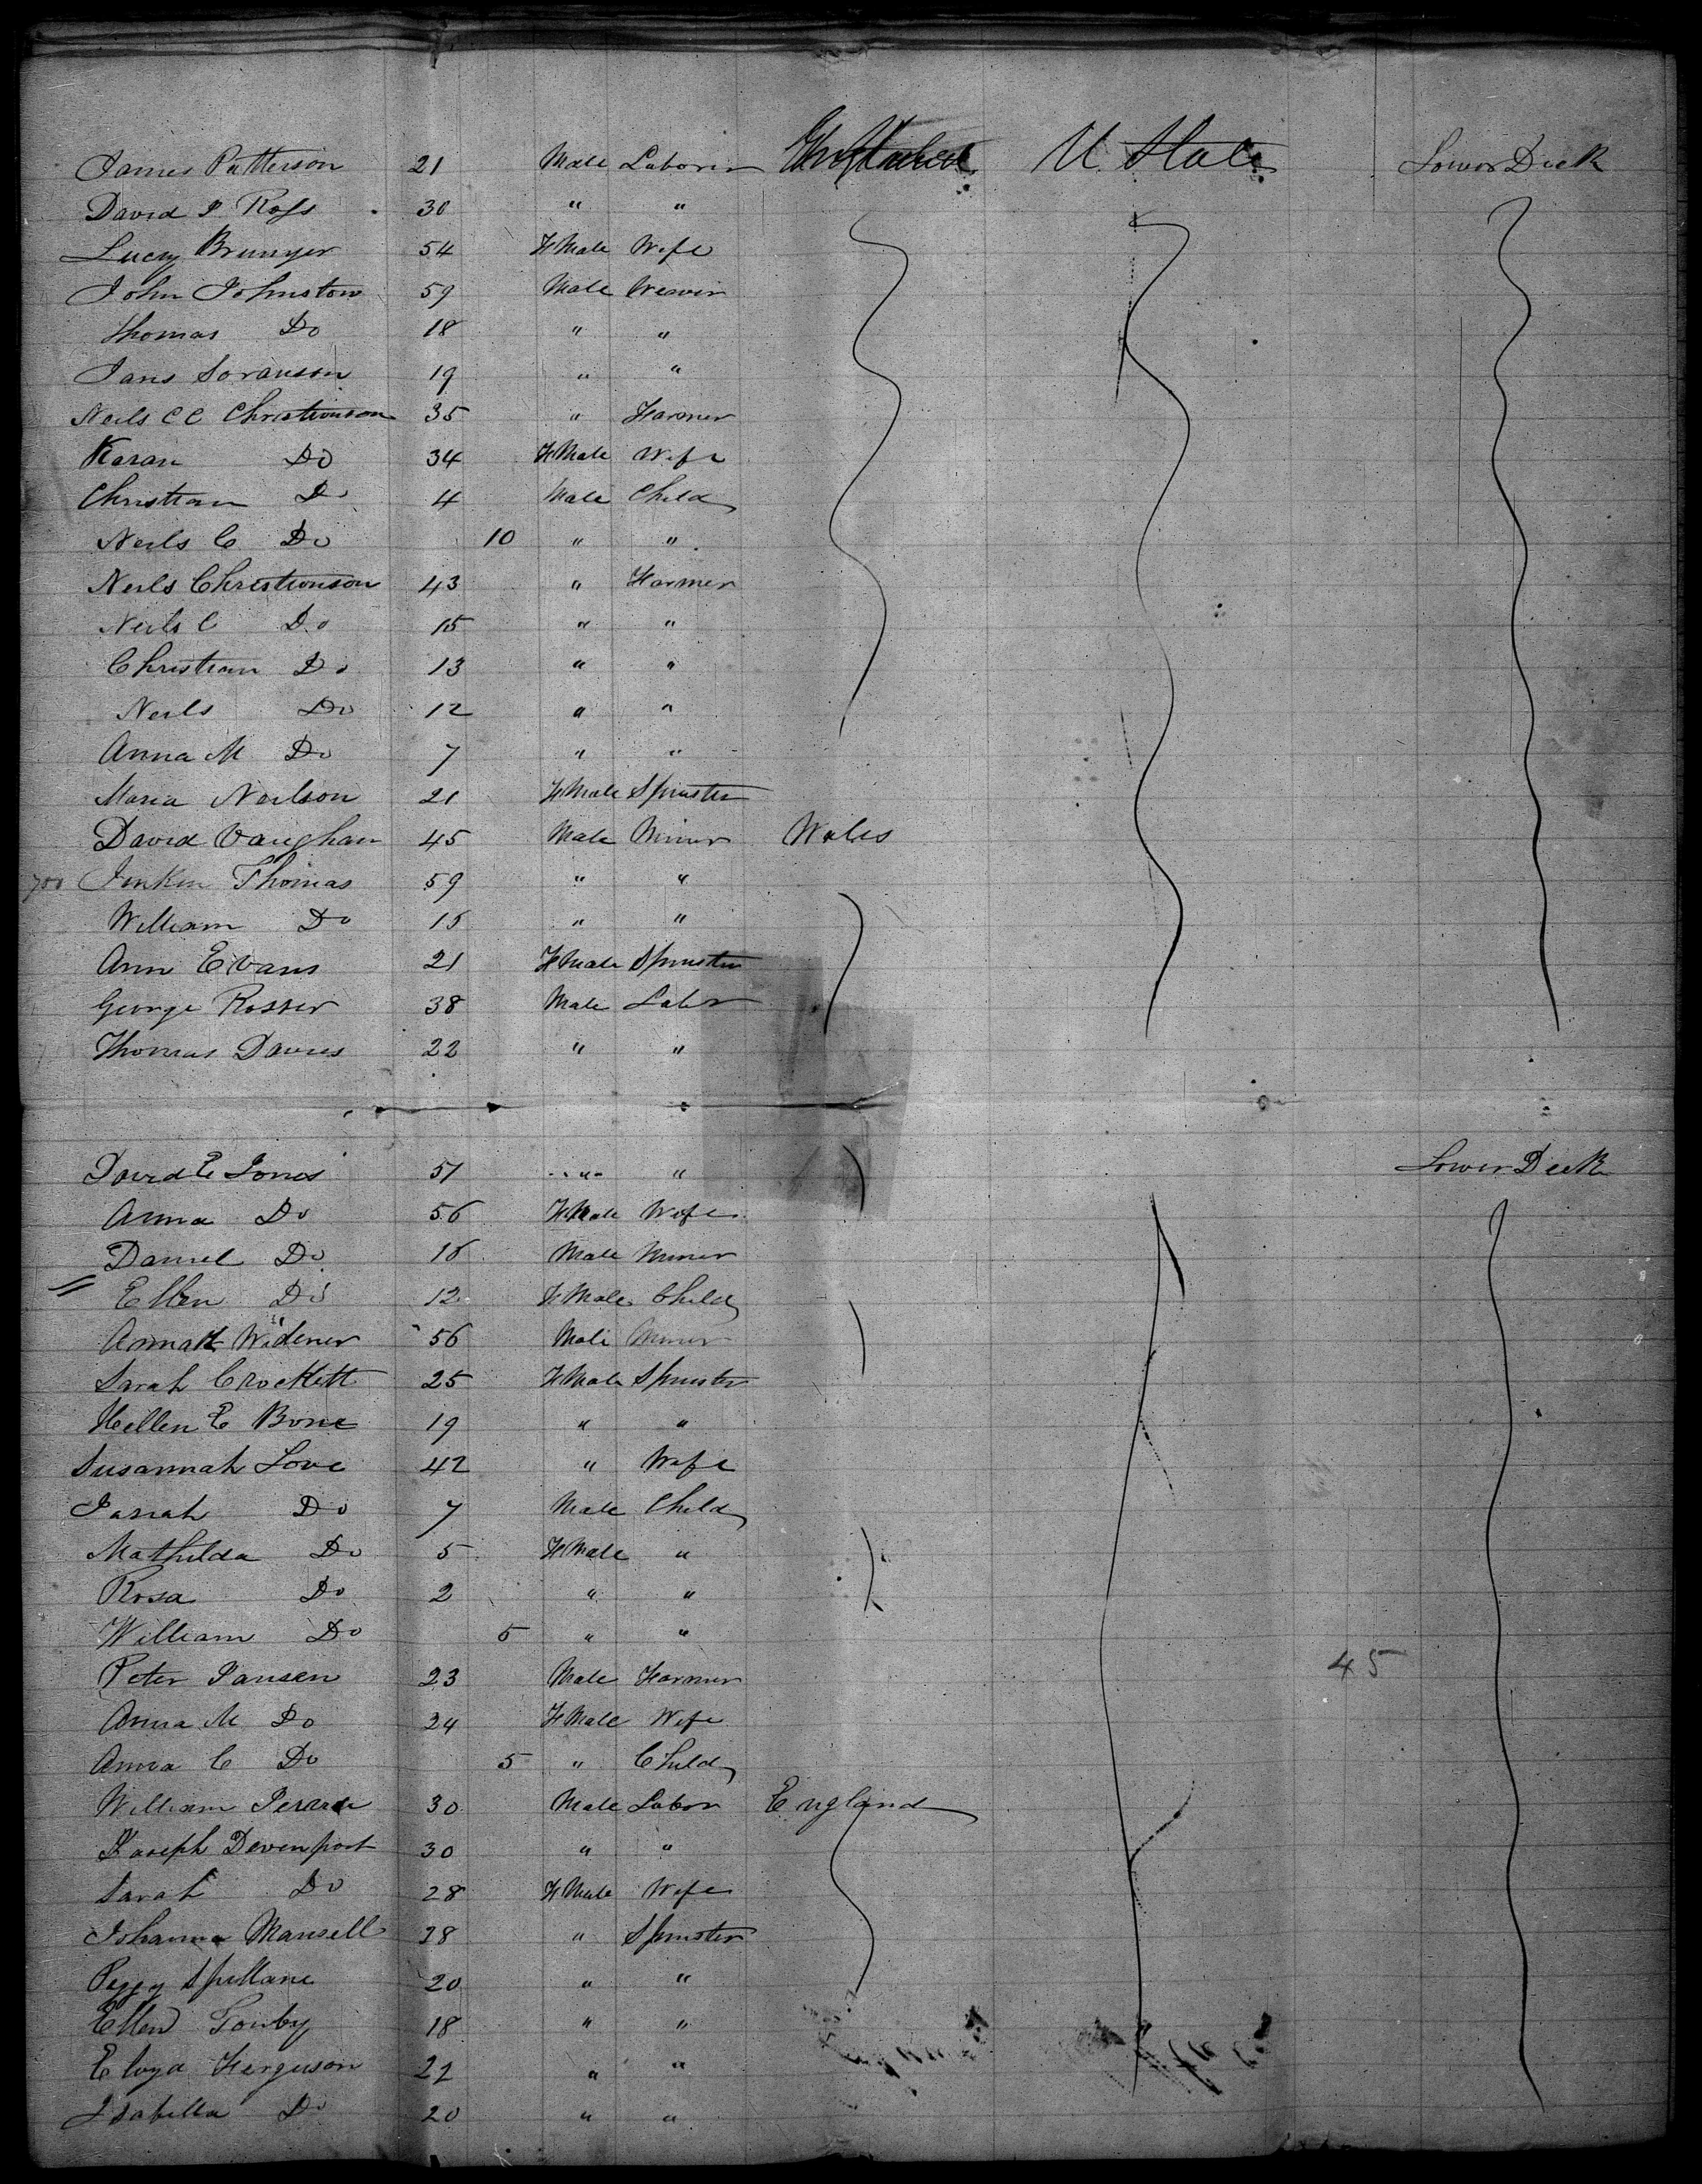 James Patterson 21 Male Laborer U. States Lower Deck
David P Ross 30 " "
Lucy Brunyer 54 FMale Wife
John Johnston 59 Male Weaver
Thomas Do 18 " "
Jans Soranson 19 " "
Neils C C Christionson 35 " Farmer
Karan Do 34 FMale Wife
Christian Do 4 Male Child
Neils C Do 10 " "
Neils Christionson 43 " Farmer
Neils C Do 15 " "
Christian Do 13 " "
Neils Do 12 " "
Anna M Do 7 " "
Maria Neilson 21 FMale Spinster
David Vaughan 45 Male Miner Wales
700 Jenkin Thomas 59 " "
William Do 15 " "
Ann Evans 21 FMale Spinster
George Rosser 38 Male Labor
Thomas Davies 22 " "
David E Jones 51 " " Lower Deck
Anna Do 56 FMale Wife
Daniel Do 18 Male Miner
Ellen Do 12 FMale Child
Widener 56 Male Miner
Sarah Crockett 25 FMale Spinster
Hellen E Bone 19 " "
Susannah Love 42 " Wife
Do 7 Male Child
Mathilda Do 5 FMale "
Rosa Do 2 " "
William Do 5 " "
Peter Jansen 23 Male Farmer 45
Anna M Do 24 FMale Wife
Anna C Do 5 " Child
William 30 Male Labor England
Joseph Devenport 30 " "
Sarah Do 28 FMale Wife
Johanna Mansell 28 " Spinster
Peggy Spillane 20 " "
Ellen 18 " "
Ferguson 22 " "
Isabella Do 20 " "